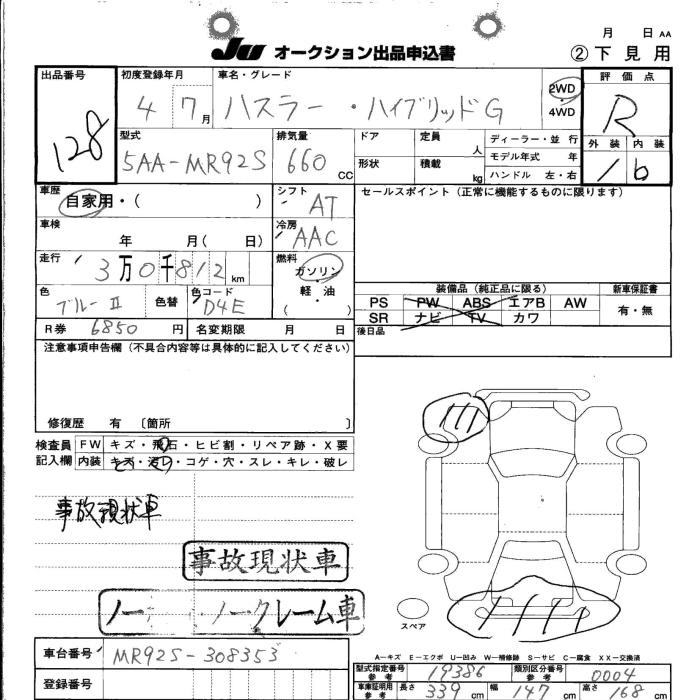 月 日 AA
JU オークション出品申込書 ②下見用
出品番号 128
初度登録年月 4 7月
車名・グレード ハスラー・ハイブリッドG
2WD・4WD
評価点 R
外装 内装
1 b
型式 5AA-MR92S
排気量 660 CC
ドア 定員 人
形状 積載 kg
ディーラー・並行
モデル年式 年
ハンドル 左・右
車歴 自家用・( )
シフト AT
セールスポイント(正常に機能するものに限ります)
車検 年 月( 日)
冷房 AAC
走行 3万0千812km
燃料 ガソリン・軽・油 ( )
色 ブルーⅡ 色替
色コード D4E
装備品(純正品に限る)
新車保証書 有・無
PS PW ABS エアB AW
SR ナビ TV カワ
R券 6850円 名変期限 月 日
後日品
注意事項申告欄(不具合内容等は具体的に記入してください)
修復歴 有 〔箇所 〕
検査員記入欄
FW キズ・飛石・ヒビ割・リペア跡・X要
内装 キズ・汚レ・コゲ・穴・スレ・キレ・破レ
事故現状車
事故現状車
ノー ノークレーム車
スペア
A—キズ E—エクボ U—凹み W—補修跡 S—サビ C—腐食 XX—交換済
車台番号 MR92S-308353
登録番号
型式指定番号 参考 19386
類別区分番号 参考 0004
車庫証明用 参考 長さ 339cm 幅 147cm 高さ 168cm